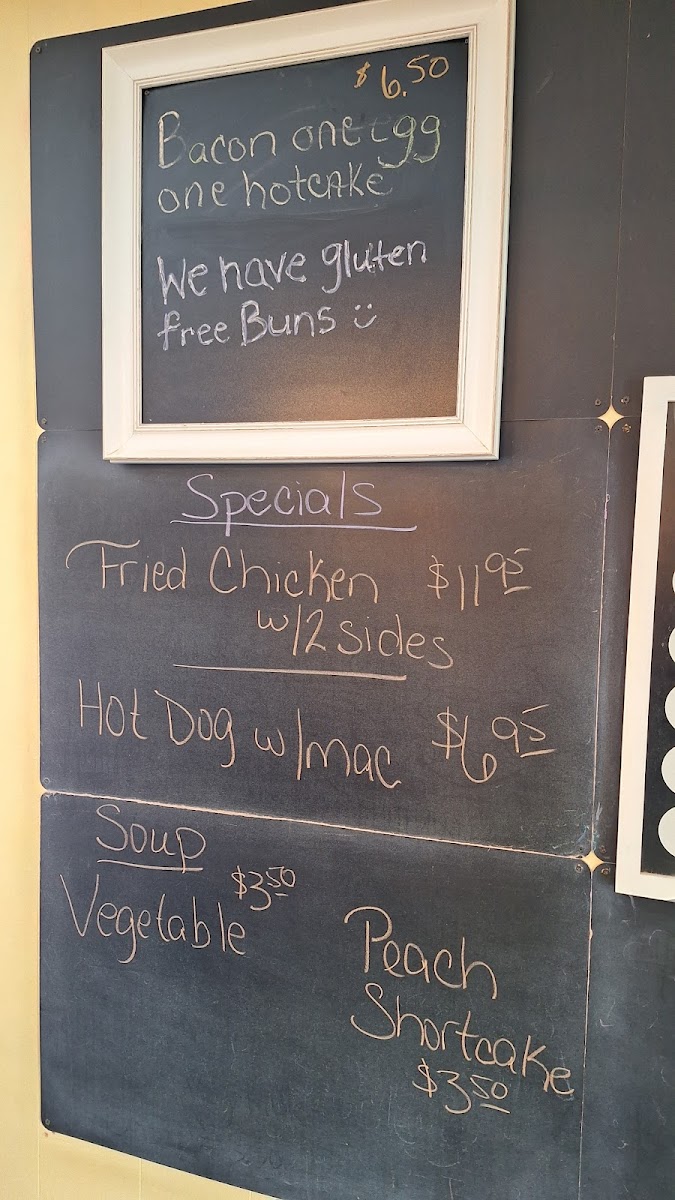 $6.50
Bacon one egg
one hotcake
We have gluten
free Buns :)
Specials
Fried Chicken $11.95
w/2 sides
Hot Dog w/mac $6.95
Soup
$3.50
Vegetable
Peach
Shortcake
$3.50